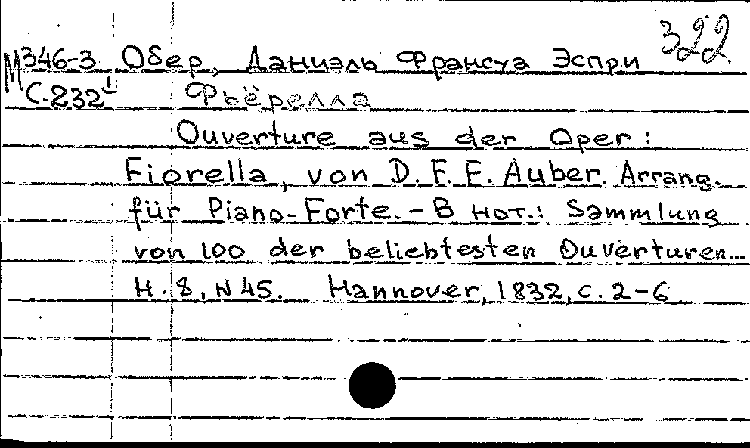 322
М346-3 Обер, Даниэль Франсуа Эспри
С.232¹ Фьёрелла
Ouverture aus der Oper:
Fiorella, von D. F. E. Auber. Arrang.
für Piano-Forte. - В нот.: Sammlung
von 100 der beliebtesten Ouverturen...
H. 8, N 45. Hannover, 1832, с. 2-6